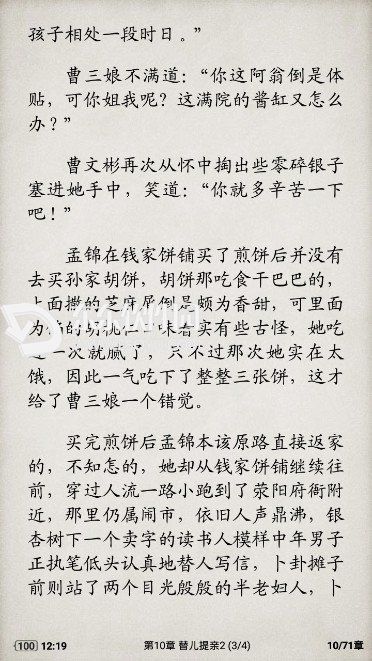 孩子相处一段时日。”
曹三娘不满道：“你这阿翁倒是体
贴，可你姐我呢？这满院的酱缸又怎么
办？”
曹文彬再次从怀中掏出些零碎银子
塞进她手中，笑道：“你就多辛苦一下
吧！”
孟锦在钱家饼铺买了煎饼后并没有
去买孙家胡饼，胡饼那吃食干巴巴的，
上面撒的芝麻屑倒是颇为香甜，可里面
为的胡桃仁味着实有些古怪，她吃
过一次就腻了，只不过那次她实在太
饿，因此一气吃下了整整三张饼，这才
给了曹三娘一个错觉。
买完煎饼后孟锦本该原路直接返家
的，不知怎的，她却从钱家饼铺继续往
前，穿过人流一路小跑到了荥阳府衙附
近，那里仍属闹市，依旧人声鼎沸，银
杏树下一个卖字的读书人模样中年男子
正执笔低头认真地替人写信，卜卦摊子
前则站了两个目光殷殷的半老妇人，卜
100 12:19 第10章 替儿提亲2 (3/4) 10/71章